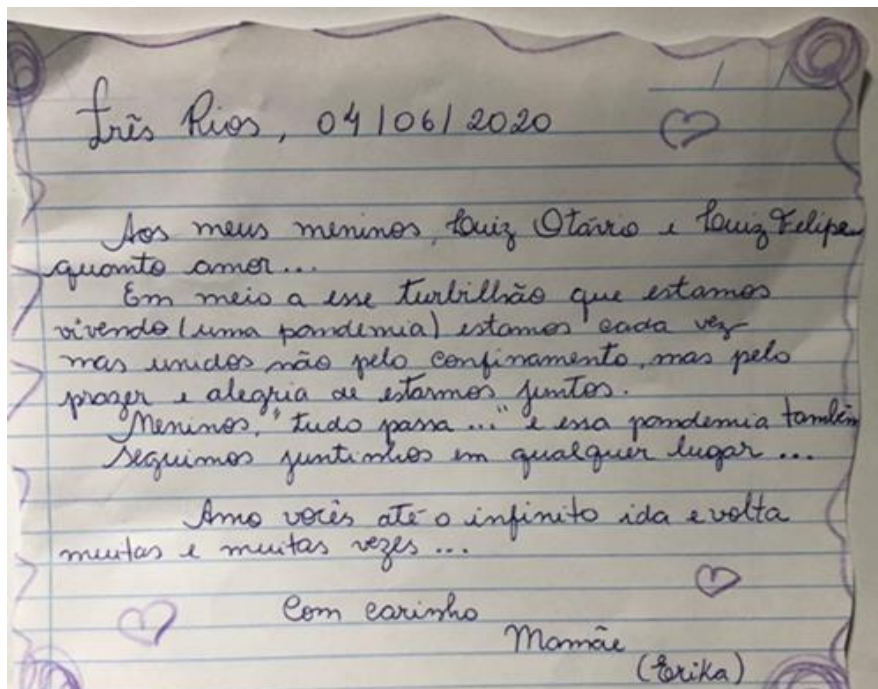 Três Rios, 04/06/2020
Aos meus meninos, Luiz Otávio e Luiz Felipe
quanto amor...
Em meio a esse turbilhão que estamos
vivendo (uma pandemia) estamos cada vez
mas unidos não pelo confinamento, mas pelo
prazer e alegria de estarmos juntos.
Meninos, "tudo passa..." e essa pandemia também
seguimos juntinhos em qualquer lugar...
Amo vocês até o infinito ida e volta
muitas e muitas vezes...
Com carinho
Mamãe
(Erika)